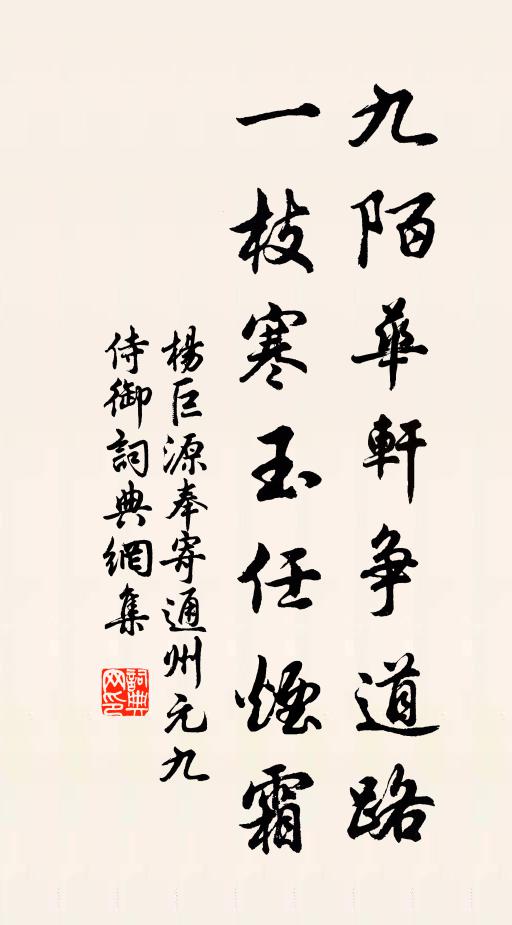 九陌華軒争道路
一枝寒玉任煙霜
楊巨源奉寄通州元九
侍御詞典網集
詞典網印